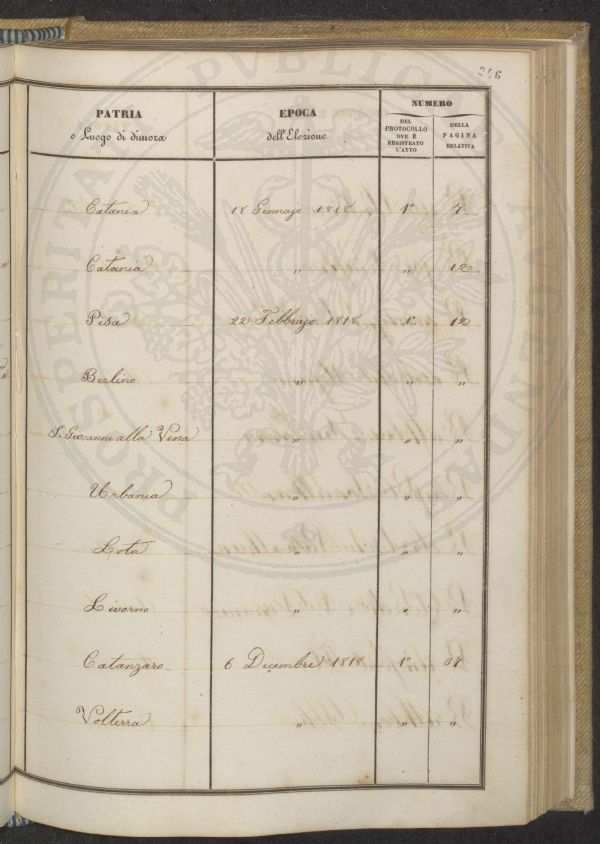 246
PATRIA
o Luogo di dimora
EPOCA
dell'Elezione
NUMERO
DEL
PROTOCOLLO
OVE È
REGISTRATO
L'ATTO
DELLA
PAGINA
RELATIVA
Catania 18 Gennajo 1818 1° 7
Catania " " 12
Pisa 22 Febbrajo 1818 1° 12
Berlino " " "
S. Giovanni alla Vena " " "
Urbania " " "
Lota " " "
Livorno " " "
Catanzaro 6 Dicembre 1818 1°
Volterra " " "
PROSPERITATI PVBLICAE AVGENDAE